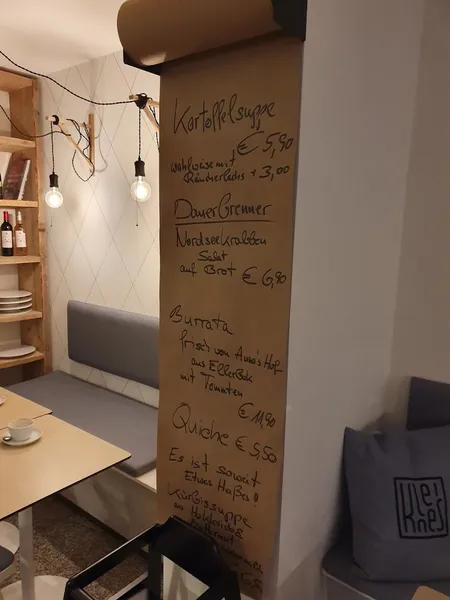 Kartoffelsuppe
€ 5,90
wahlweise mit
Räucherlachs + 3,00
Dauerbrenner
Nordseekrabben
Salat
auf Brot € 6,90
Burrata
frisch von Anna's Hof
aus Ellerbek
mit Tomaten
€ 11,90
Quiche € 5,50
Es ist soweit
Etwas Heißes!
Kürbissuppe
aus Hokkaido &
Butternut
kler
hnes